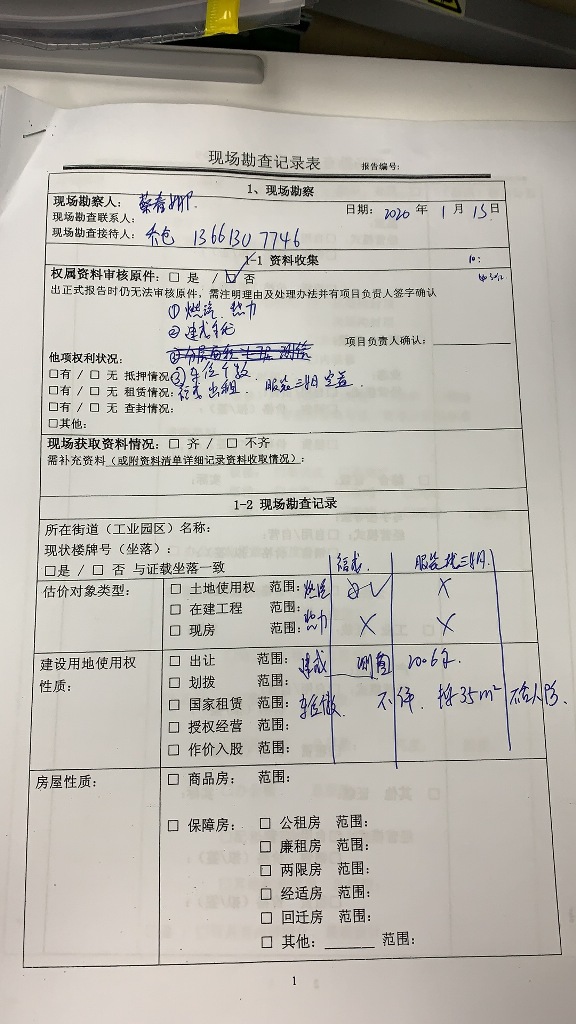 现场勘查记录表 报告编号:
1、现场勘察
现场勘察人:
日期: 2020 年 1 月 15 日
现场勘查联系人:
现场勘查接待人: 13661307746
1-1 资料收集 10:
权属资料审核原件: □ 是 / ☑ 否
出正式报告时仍无法审核原件，需注明理由及处理办法并有项目负责人签字确认
① 燃汽、热力
② 建成年代
项目负责人确认:
他项权利状况:
□有 / □ 无 抵押情况: ③ 车位个数
□有 / □ 无 租赁情况: 出租
□有 / □ 无 查封情况:
□其他:
现场获取资料情况: □ 齐 / □ 不齐
需补充资料（或附资料清单详细记录资料收取情况）:
1-2 现场勘查记录
所在街道（工业园区）名称:
现状楼牌号（坐落）:
□是 / □ 否 与证载坐落一致
估价对象类型: □ 土地使用权 范围: 燃汽 ✓ ×
□ 在建工程 范围:
□ 现房 范围: 热力 × ×
建设用地使用权 □ 出让 范围: 建成 2006年.
性质: □ 划拨 范围:
□ 国家租赁 范围: 车位数 不详. 35m²
□ 授权经营 范围:
□ 作价入股 范围:
房屋性质: □ 商品房: 范围:
□ 保障房: □ 公租房 范围:
□ 廉租房 范围:
□ 两限房 范围:
□ 经适房 范围:
□ 回迁房 范围:
□ 其他: ______ 范围:
1